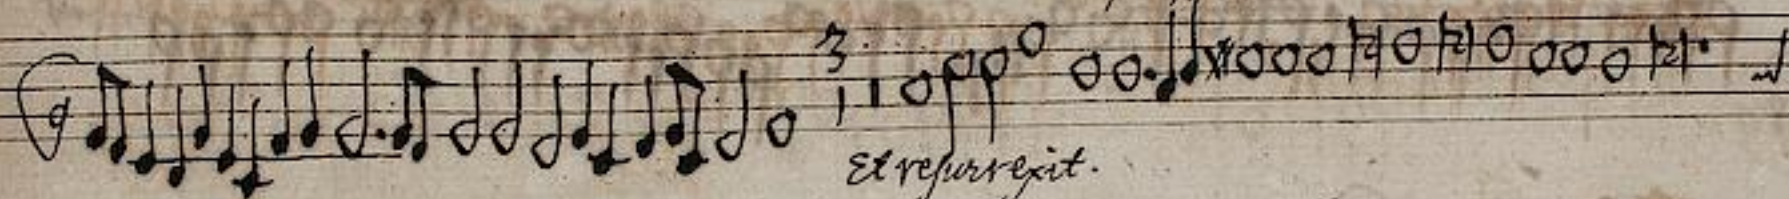 3
1
Et resurrexit.